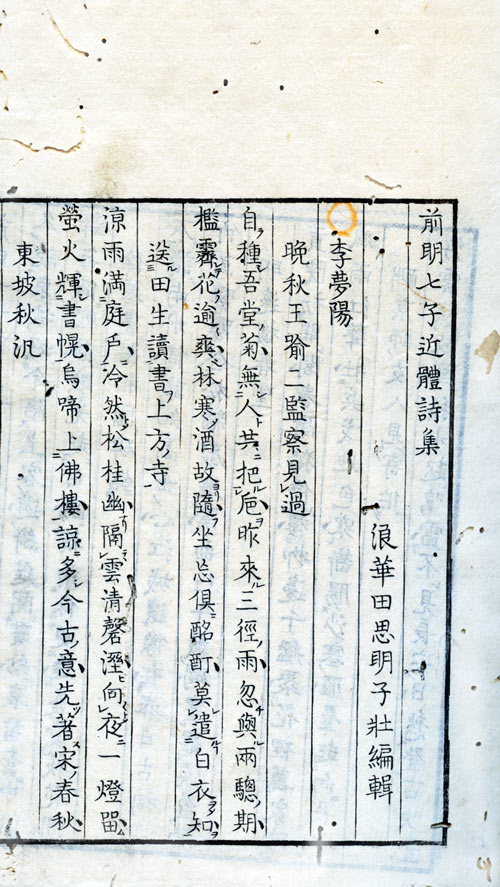 前明七子近體詩集
浪華田思明子壯編輯
李夢陽
晚秋王踰二監察見過
自種吾堂菊無人共把巵昨來三徑雨忽與兩驄期
檻霽花逾爽林寒酒故隨坐忘俱酩酊莫遣白衣知
送田生讀書上方寺
涼雨滿庭戶冷然松桂幽隔雲清磬溼向夜一燈留
螢火輝書幌烏啼上佛樓諒多今古意先著宋春秋
東坡秋汎